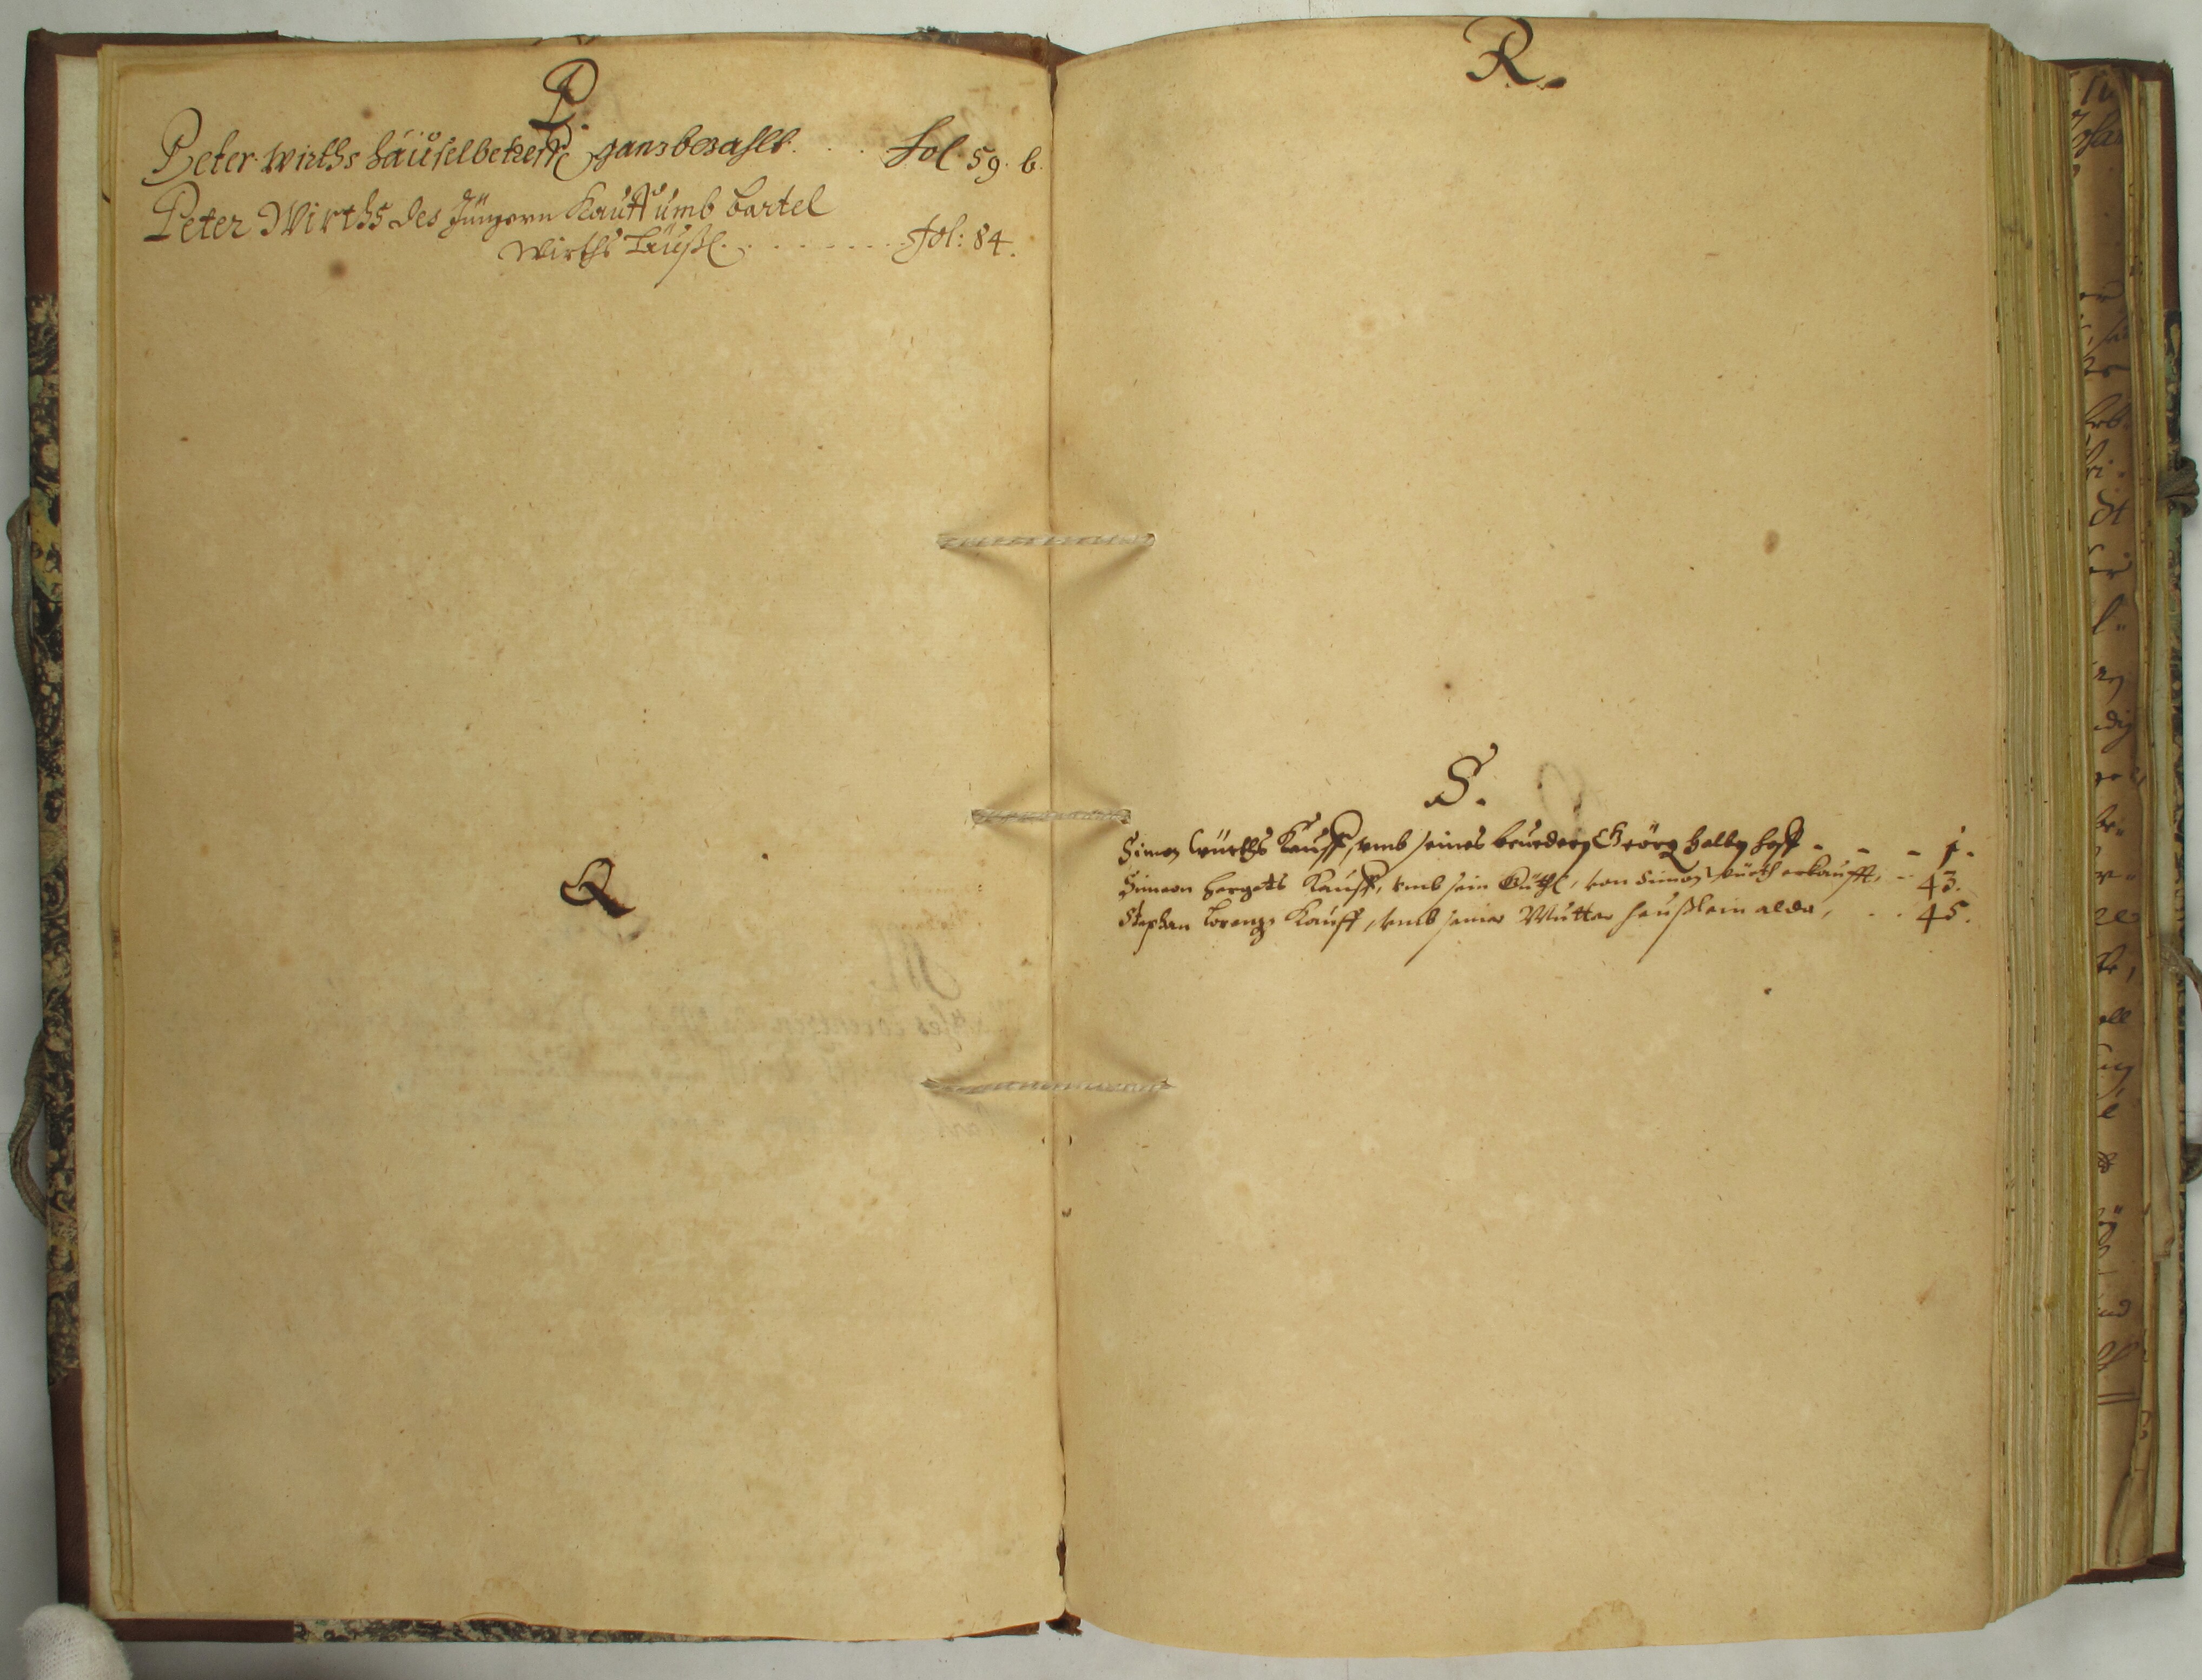 P.
Peter Wirths häusel betreffe ganz bezahlt. . . . Fol 59. b.
Peter Wirths des Jüngern Kauff umb bartel
Wirths Häußl. . . . . . . . . Fol: 84.
Q
R.
S.
Simon Würths Kauff, vmb seines bruedern Geörg halben hoff - - - 1.
Simeon hergetts Kauff, vmb sein Güthl, von Simon würth erkaufft, - - 43.
Stephan Lorenz Kauff, vmb seiner Mutter heußlein alda, . . 45.